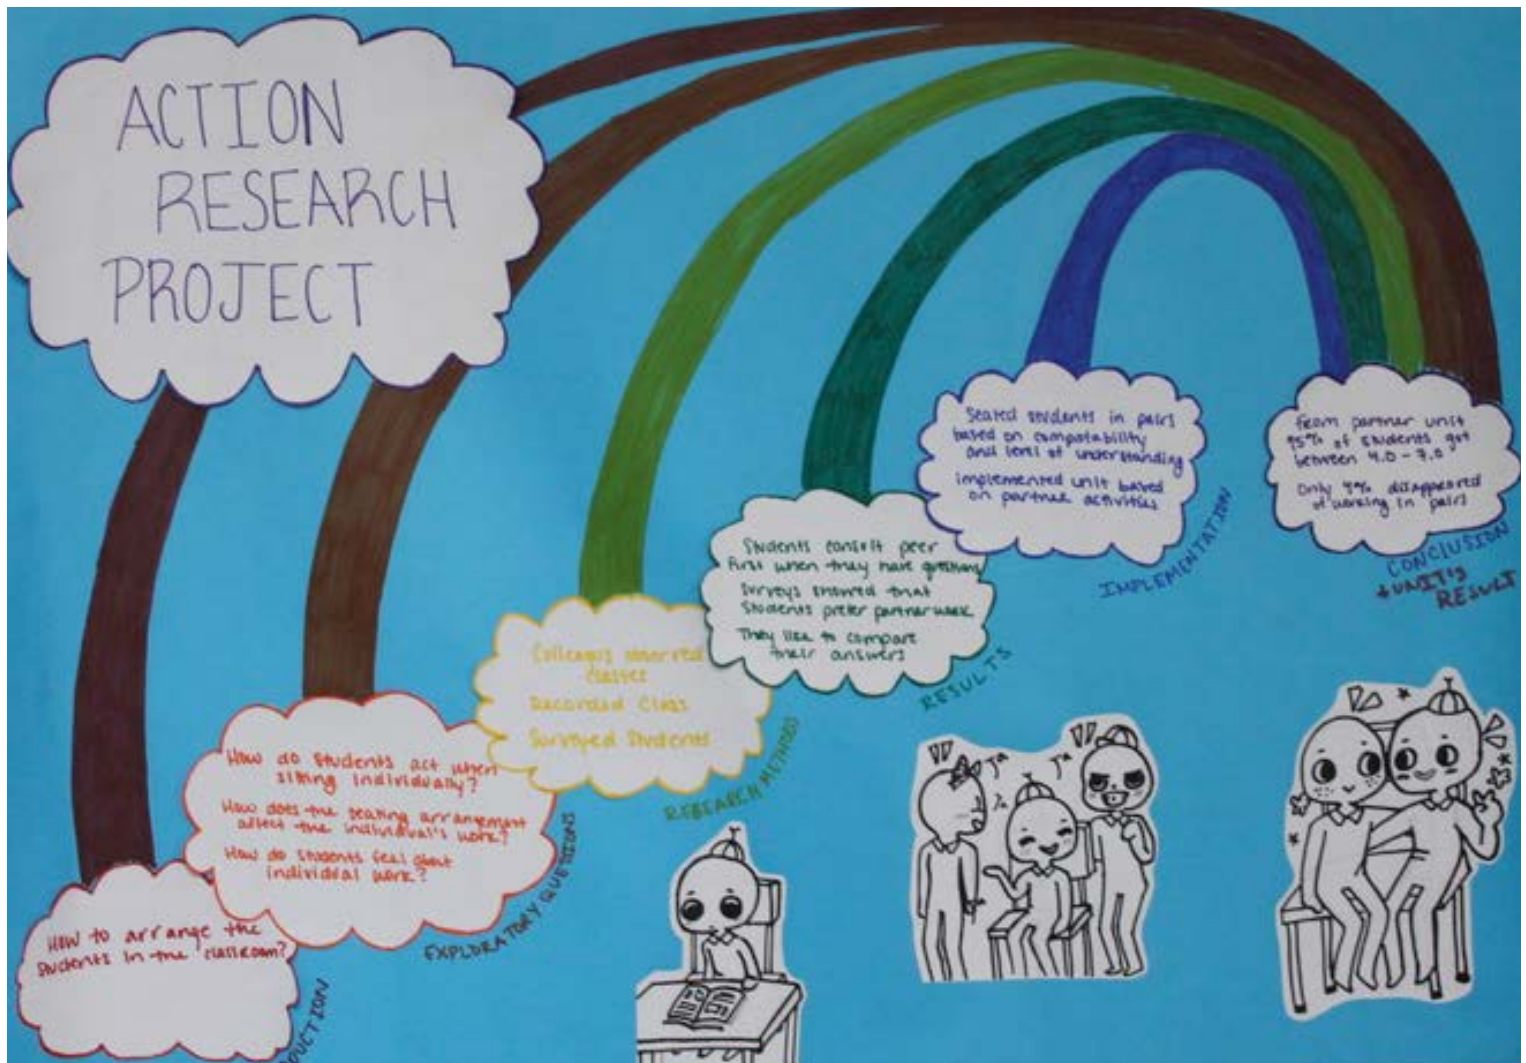 ACTION
RESEARCH
PROJECT
How to arrange the
students in the classroom?
DUCTION
How do students act when
sitting individually?
How does the seating arrangement
affect the individual's work?
How do students feel about
individual work?
EXPLORATORY QUESTIONS
observed
classes
Recorded Class
Surveyed Students
RESEARCH METHODS
Students consult peer
first when they have questions
Surveys showed that
Students prefer partner work
They like to compare
their answers
RESULTS
Seated students in pairs
based on compatability
and level of understanding
implemented unit based
on partner activities
IMPLEMENTATION
From partner unit
95% of students got
between 4.0 - 7.0
Only
of working in pairs
CONCLUSION
+ UNIT'S
RESULT